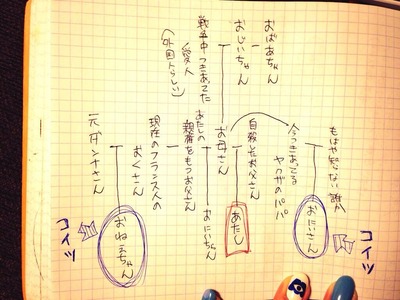 おばあちゃん
おじいちゃん
戦争中つきあってた
愛人
(外国人らしい)
もはや知らない誰か
今つきあってる
ヤクザのパパ
自殺したお父さん
お母さん
あたしの
親権をもつお父さん
現在のフランス人の
おくさん
元ダンナさん
おにいさん
あたし
おにいちゃん
おねえちゃん
コイツ
コイツ